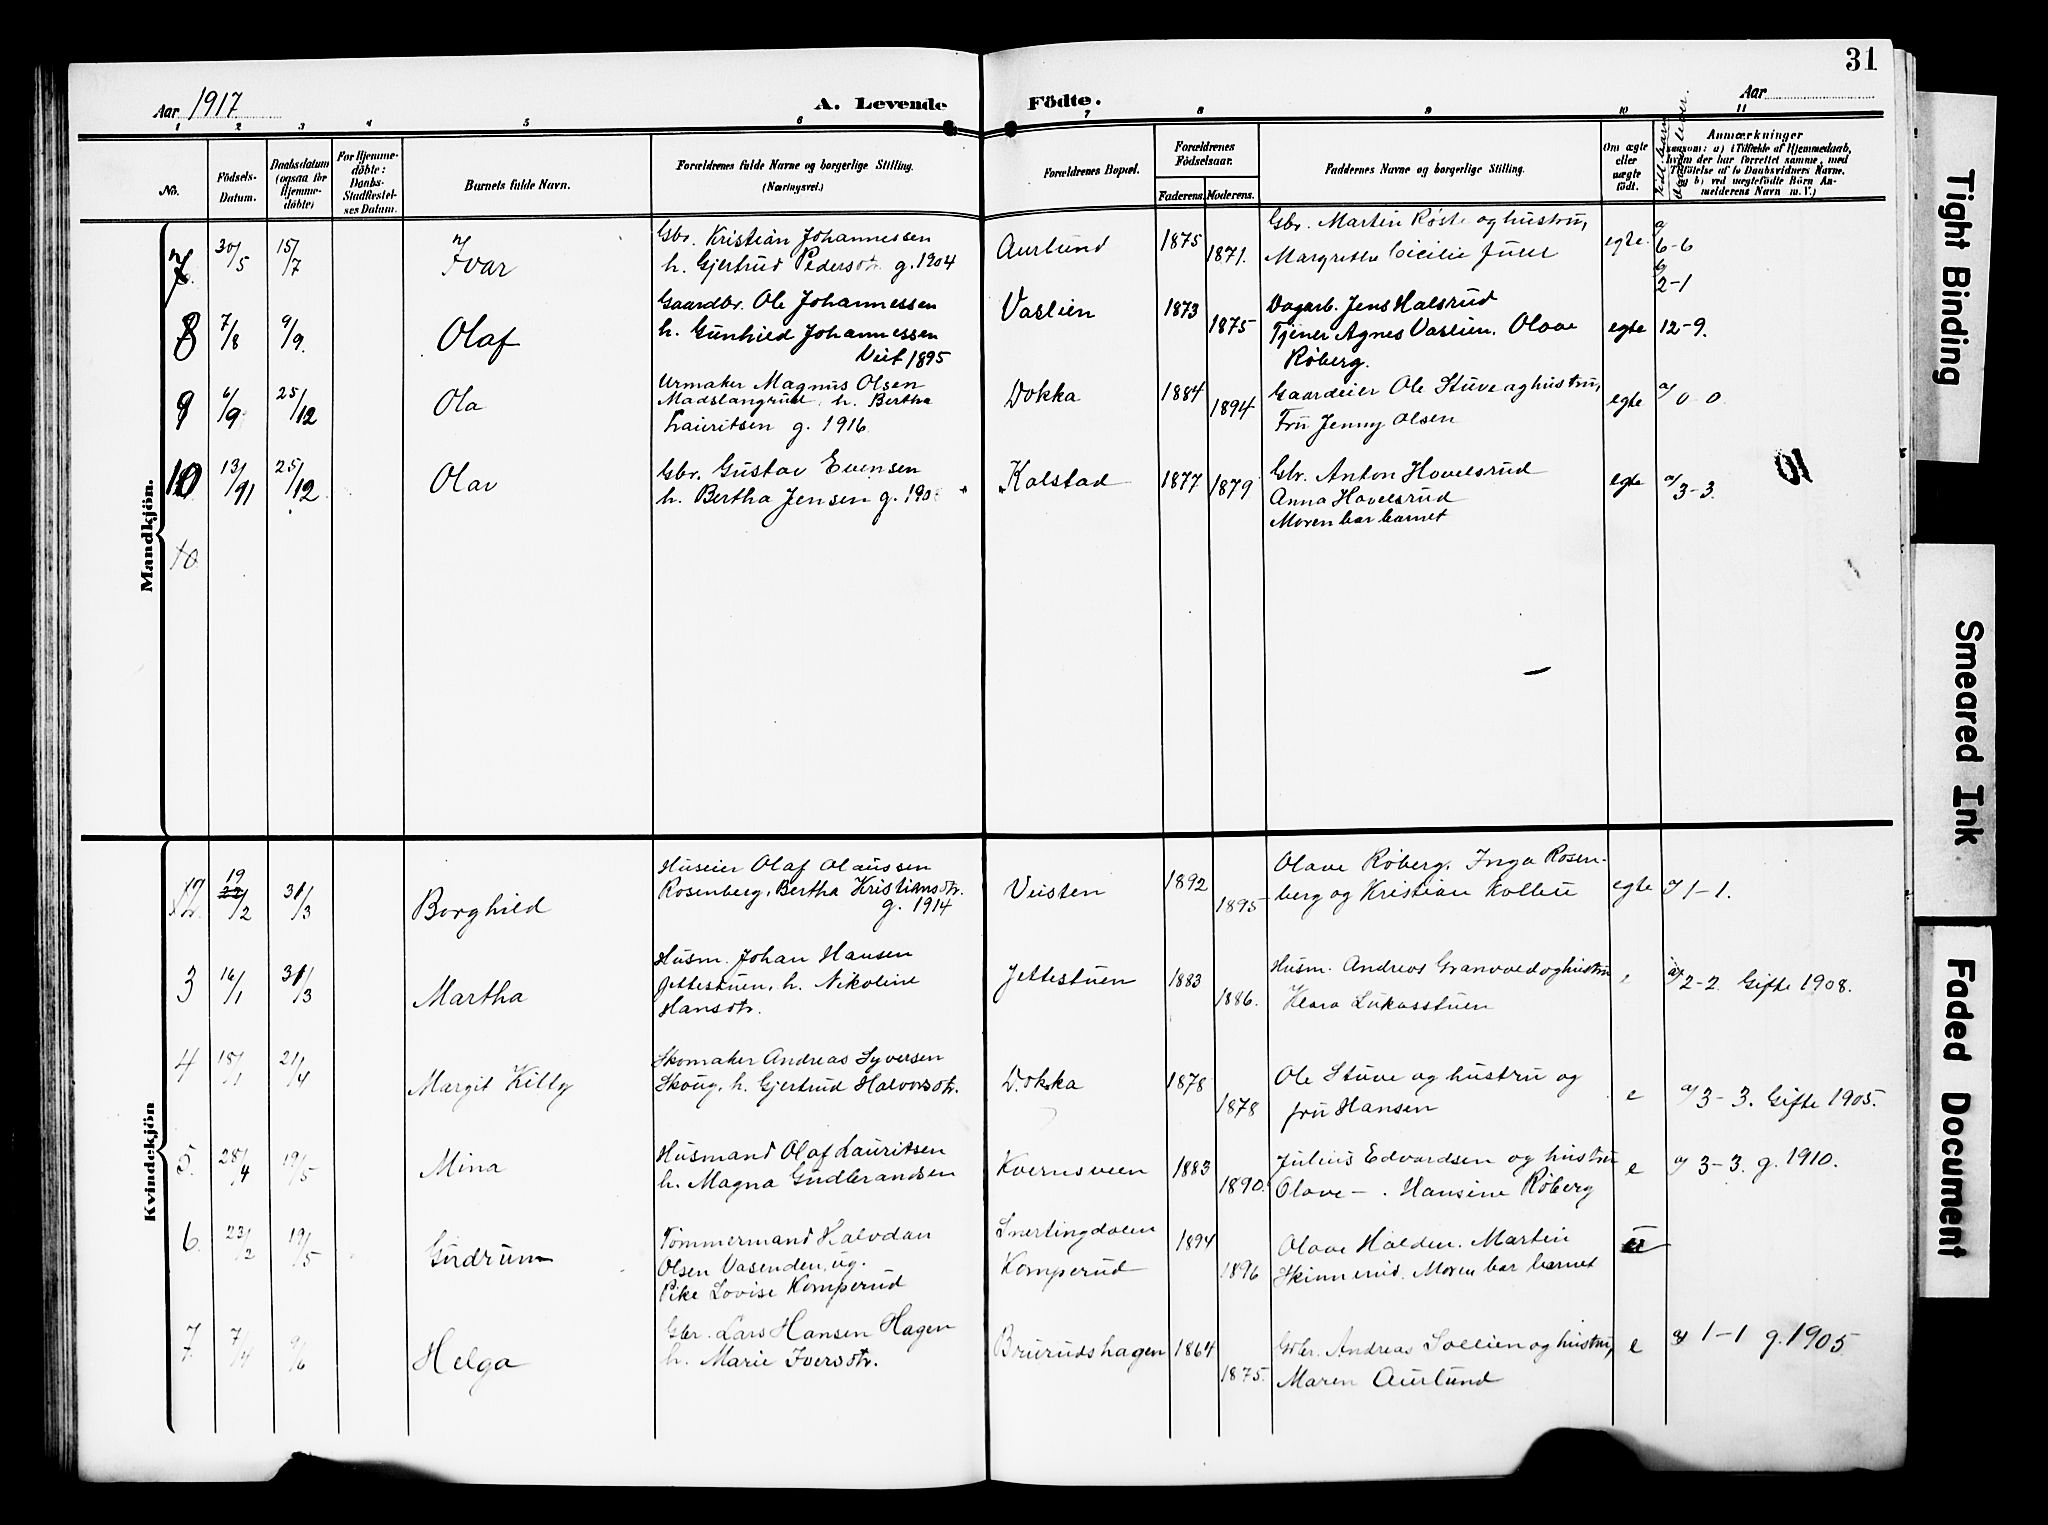 31
Aar 1917
A. Levende Födte.
Aar
1 2 3 4 5 6 7 8 9 10 11
No.
Födsels-
Datum.
Daabsdatum
(ogsaa for
Hjemme-
döbte)
For Hjemme-
döbte:
Daabs-
Stadfæstel-
ses Datum.
Barnets fulde Navn.
Forældrenes fulde Navne og borgerlige Stilling.
(Næringsvei.)
Forældrenes Bopæl.
Forældrenes
Födselsaar.
Faderens. Moderens.
Faddernes Navne og borgerlige Stilling.
Om ægte
eller
uægte
födt.
Anmærkninger
saasom: a) i Tilfælde af Hjemmedaab,
hvem der har forrettet samme, med
Tilföielse af to Daabsvidners Navne.
og b) ved uægtefödte Börn An-
melderens Navn m. V.)
Mandkjön.
7 30/5 15/7 Ivar
Gbr. Kristian Johannessen
h. Gjertrud Pedersdtr. g. 1904
Aurlund 1875 1871.
Gbr. Martin Røste og hustru,
Margrethe Cicilie Juel
egte. a 6-6
b 2-1
8 7/8 9/9. Olaf
Gaardbr. Ole Johannessen
h. Gunhild Johannessen
Viet 1895
Vaslien 1873 1875
Dagarb. Jens Halsrud
Tjener Agnes Vaslien. Olave
Røberg.
egte 12-9.
9 6/9 25/12 Ola
Urmaker Magnus Olsen
Madslangrud. h. Bertha
Lauritsen g. 1916
Dokka 1884 1894
Gaardeier Ole Stuve og hustru,
Fru Jenny Olsen
egte a/ 0-0
10 13/11 25/12 Olav
Gbr. Gustav Evensen
h. Bertha Jensen g. 190
Kalstad 1877 1879
Gbr. Anton Hovelsrud
Anna Hovelsrud
Moren bar barnet
egte a/ 3-3.
10
10
Kvindekjön
2. 19/2 31/3 Borghild
Huseier Olaf Olaussen
Rosenberg, Bertha Kristiansdtr.
g. 1914
Veisten 1892 1895
Olave Røberg. Inga Rosen-
berg og Kristian Kollen
egte a/ 1-1.
3 16/1 31/3 Martha
Husm. Johan Hansen
Jettestuen, h. Nikoline
Hansdtr.
Jettestuen 1883 1886.
Husm. Andreas Granvold og hustru
Klara Lukasstuen
e a/ 2-2. Gifte 1908.
4 18/1 21/4 Margit Killy
Skomaker Andreas Syversen
Skoug, h. Gjertrud Halvorsdtr.
Dokka 1878 1878
Ole Stuve og hustru og
fru Hansen
e a/ 3-3. Gifte 1905.
5. 28/4 19/5 Mina
Husmand Olaf Lauritsen
h. Magna Gudbrandsen
Kvernsveen 1883 1890.
Julius Edvardsen og hustru
Olave -. Hansine Røberg
e a/ 3-3. g. 1910.
6. 23/2 19/5 Gudrun
Tømmermand Halvdan
Olsen Vasenden, ug.
Pike Lovise Komperud
Snertingdalen
Komperud 1894 1896
Olave Halden. Martin
Skinnerud. Moren bar barnet
u
7. 7/4 9/6 Helga
Gbr. Lars Hansen Hagen
h. Marie Iversdtr.
Brurudshagen 1864 1875.
Gbr. Andreas Sollien og hustru,
Maren Aurlund
e a/ 1-1 g. 1905
Tight Binding
Smeared Ink
Faded Document